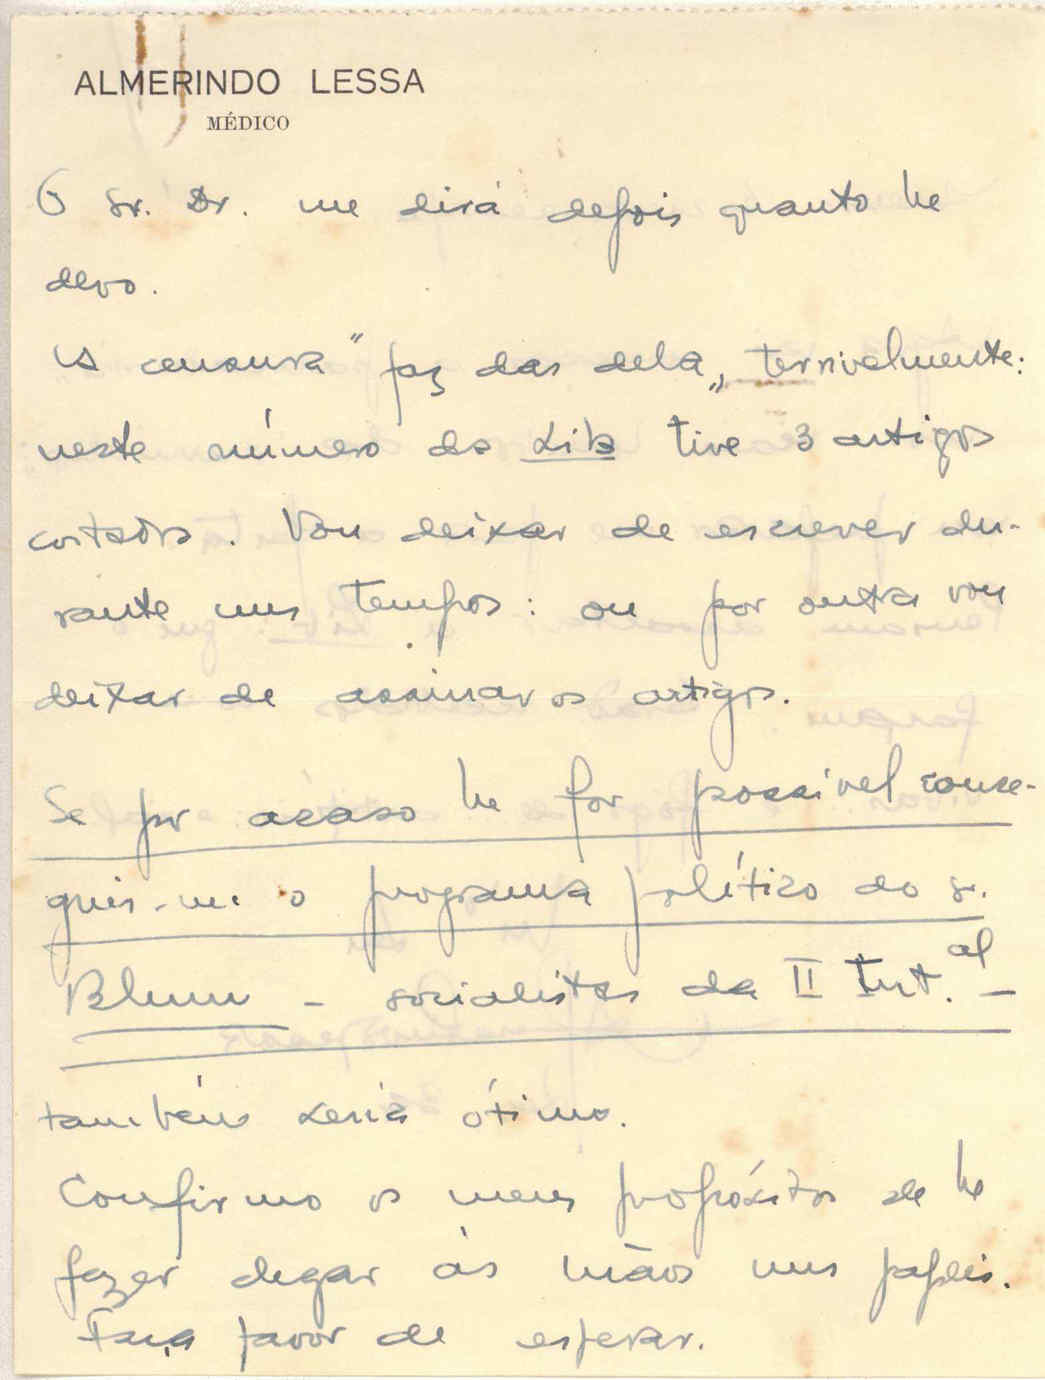 ALMERINDO LESSA
MÉDICO
O Sr. Dr. me dirá depois quanto lhe
devo.
A censura "faz das dela„ terrivelmente:
neste número da Lib tive 3 artigos
cortados. Vou deixar de escrever du-
rante uns tempos: ou por outra vou
deixar de assinar os artigos.
Se por acaso lhe for possível conse-
guir-me o programa político do sr.
Blum – socialistas da II Int.al –
também seria ótimo.
Confirmo os meus propósitos de lhe
fazer chegar às mãos uns papeis.
Faça favor de esperar.